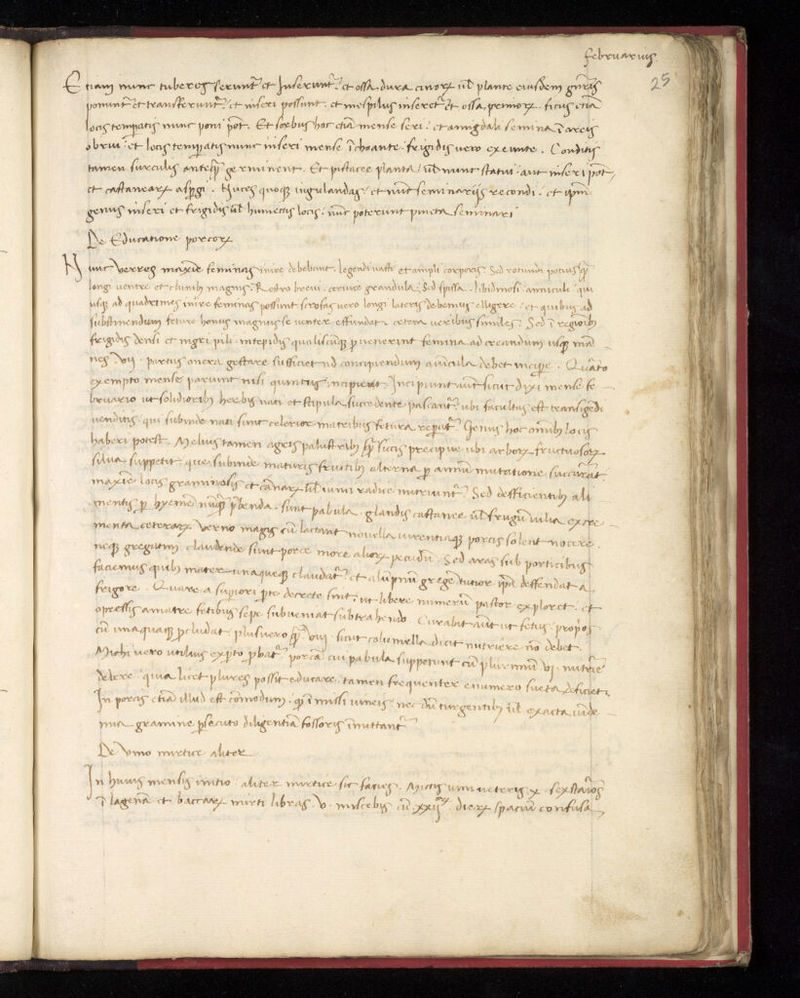 februarius
25
Etiam nunc tuberes seruntᷣ et Inseruntᷣ. et ossa dura cinorꝝ ul plante eiusdem gn̄ris
ponuntᷣ et transferuntᷣ. et inseri possunt. et mespilus inseretᷣ. et ossa pruñorꝝ. ficus etiā
locis temꝑatis nunc poni pōt. Et sorbus hoc etiā mense seri. et amigdali semina ī areis
obrui. et locis temꝑatis nunc inseri mense īchoante. frigidis uero exeunte. Conditis
tamen surculis anteq̄ꝫ germinent. Et pistacee planta ul nunc statui. aut inseri pōt.
et castanearꝝ asꝑgi. Nuces quoqꝫ iuglandas. et nūc seminarijs recondi. et
genus inseri et frigidis ul humectis locis. nūc poterunt pineta seminari
De Educatione porcorꝝ
Nunc Verres maxīe feminas inire debebunt. legendi uasti et ampli corporis. Sed rotundi potius q̄ꝫ
longi uentre et clunibus magnis. Rostro breui. ceruice grandula. Sed spissa. libidinosi anniculi. qui
usqꝫ ad quadrimos inire feminas possunt. scrofas uero longi lateris debemus elligere. et quibus ad
substinendum feture honus magnus se uenter effundat. cetera ueribus similes. Sed ī regionibꝫ
frigidis densi et nigri pili. intepidis qualiscūqꝫ ꝓuenerint femina ad creandum usqꝫ ad ān̄
nos Vij. partus onera gestare sufficiet. ad concipiendum aūicula debet incipe. Quarto
exempto mense pariunt nisi quintus incipiens. Incipiunt aūt sicut dixi mense fe
bruario ut solidioribꝫ herbis nati et stipula succedente pascantᷣ. ubi facultas est transigēdi
uenditis. qui subinde nati sunt celerior matribus fetura reparatᷣ. Genus hoc omībꝫ locis
haberi potest. Melius tamen agris palustribꝫ q̄ꝫ siccis. precipue ubi arborꝝ fructuosarꝝ
silua suppetit. que subinde maturis fructibꝫ alterna ꝑ annū mutatione succurrat.
maxīe locis graminosis et cānarꝝ ul iunci radice nutriuntᷣ. Sed defficientibꝫ ali
mentis ꝑ hyemē nūqꝫ p̄benda. sunt pabula. glandis castanee ul frugū uilia excre
menta ceterarꝝ. Verno magis cū lactant nouella uirentiaqꝫ porcis solent nocere.
neqꝫ gregatim claudende sunt porce more aliorꝝ pecudū. Sed aras sub porticibus
faciemus quibꝫ mater unaqueqꝫ claudatᷣ. et alūpnū gregē tutior ip̄a deffendat a
frigore. Quare a suꝑiori ꝑte detecte sint. ut libere numerū pastor exploret. et
opressis a matre fetibus sepe subueniat subtrahendo. Curabit aūt ut fetus propos
cū unaquaqꝫ ꝓcludat. plus uero q̄ꝫ Viij. sicut columella dicit nutriere nō debet.
Michi uero utilius exꝑto ꝓbatᷣ porcā cui pabula suppetunt cū plurimū Vj. nutrire
debere. quia licet plures possit educare. tamen frequenter enumero sueta deficiet.
In porcis etiā illud est cōmodum. qꝫ īmissi uineis nec dū turgentibꝫ ul exacta uinde
mia gramine ꝑsecuto diligentiā fossoris īmittantᷣ
De Vino mirtice aliter
In huius mensis initio. aliter mirtice sic facies. Mictis uini ueteris x. sextarios
ī lagenā et baccarꝝ mirti libras V. miscebis. cū xxij dierꝝ spaciū confusa